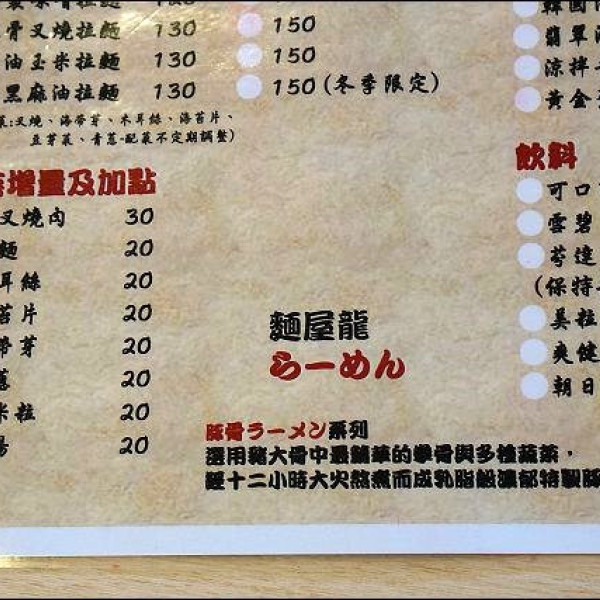 骨叉燒拉麵 130
油玉米拉麵 130
黑麻油拉麵 130
菜:叉燒、海帶芽、木耳絲、海苔片、
豆芽菜、青蔥-配菜不定期調整)
150
150
150(冬季限定)
韓國
翡翠
涼拌
黃金
增量及加點
叉燒肉 30
麵 20
耳絲 20
苔片 20
帶芽 20
蔥 20
米粒 20
湯 20
飲料
可口
雪碧
芬達
(保特
美粒
爽健
朝日
麵屋龍
らーめん
豚骨ラーメン系列
選用豬大骨中最精華的拳骨與多種蔬菜,
經十二小時大火熬煮而成乳脂般濃郁特製豚